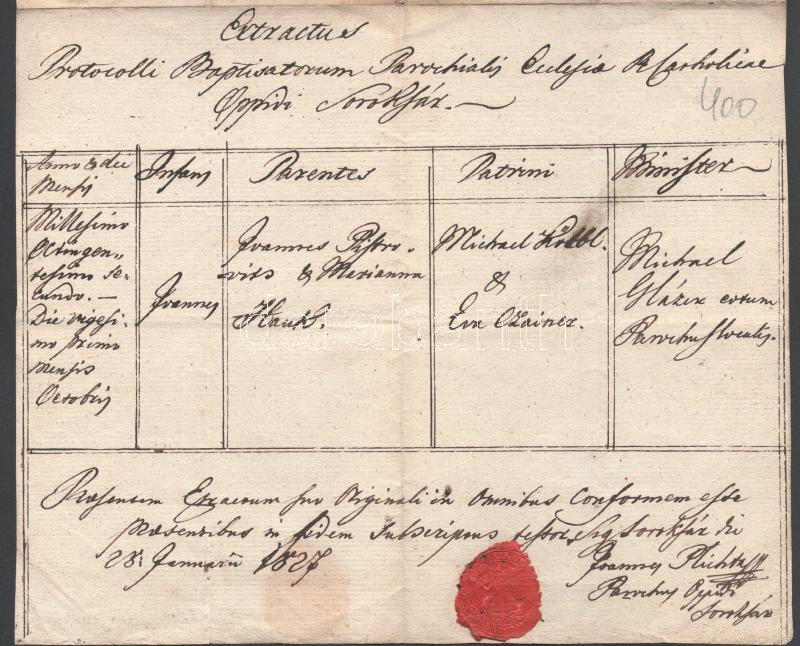 Extractus
Protocolli Baptisatorum Parochialis Ecclesiæ R Catholicae
Oppidi Soroksár.
400
Anno & die
Mensis
Infans
Parentes
Patrini
Minister
Millesimo
Octingen„
tesimo se„
cundo.—
Die vigesi„
mo primo
Mensis
Octobris
Joannes
Joannes Pistro„
vits & Marianna
Hauk.
Michael Költl.
&
Eva Czainer.
Michael
Glázer eorum
Parochus Locatis.
darabanth
Præsentem Extractum suo Originali in Omnibus Conformem esse
præsentibus in fidem Subscriptus testor, Sig Soroksár die
28: Januarii 1827
Joannes
Parochus Oppidi
Soroksár